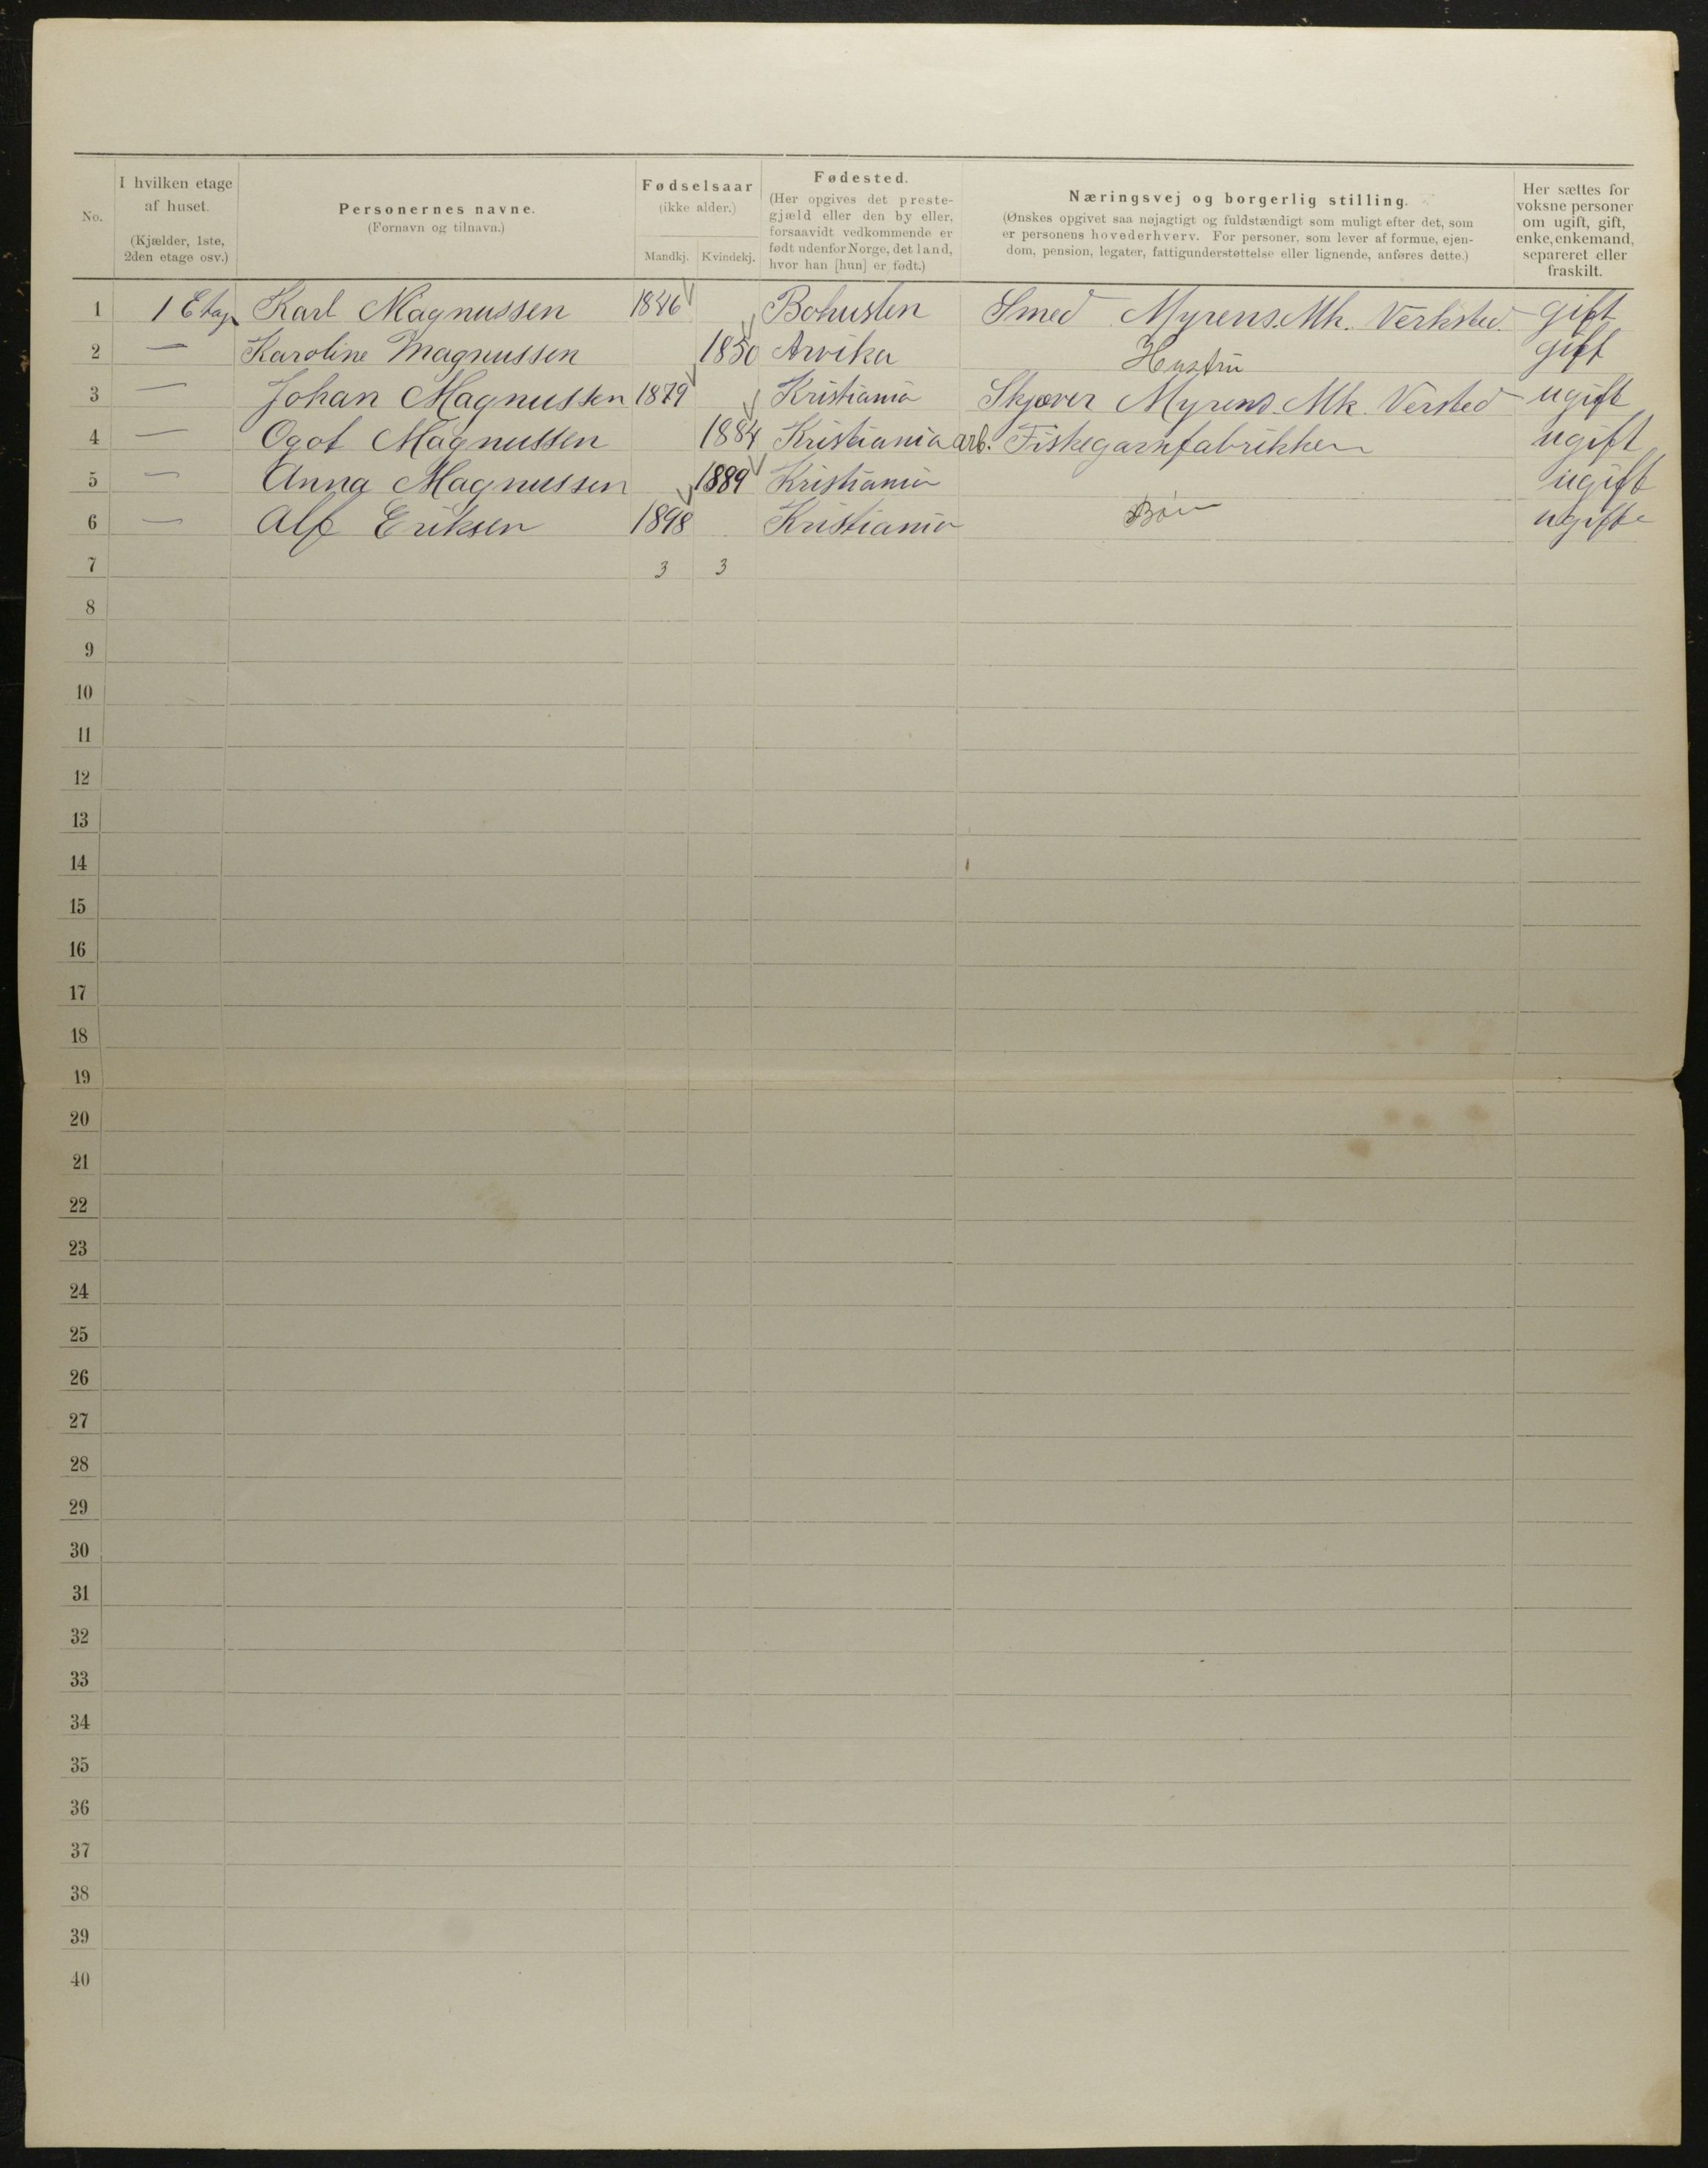 No.
I hvilken etage af huset. (Kjælder, 1ste, 2den etage osv.)
Personernes navne. (Fornavn og tilnavn.)
Fødselsaar (ikke alder.)
Mandkj. Kvindekj.
Fødested. (Her opgives det prestegjæld eller den by eller, forsaavidt vedkommende er født udenfor Norge, det land, hvor han [hun] er født.)
Næringsvej og borgerlig stilling. (Ønskes opgivet saa nøjagtigt og fuldstændigt som muligt efter det, som er personens hovederhverv. For personer, som lever af formue, ejendom, pension, legater, fattigunderstøttelse eller lignende, anføres dette.)
Her sættes for voksne personer om ugift, gift, enke, enkemand, separeret eller fraskilt.
1 1 Etag Karl Magnussen 1846 Bohuslen Smed Myrens Mk. Verksted gift
2 — Karoline Magnussen 1850 Arvika Hustru gift
3 — Johan Magnussen 1879 Kristiania Skjører Myrens Mk. Versted ugift
4 — Ogot Magnussen 1884 Kristiania arb. Fiskegarnfabrikken ugift
5 — Anna Magnussen 1889 Kristiania ugift
6 — Alf Eriksen 1898 Kristiania ugift
7 3 3
8
9
10
11
12
13
14
15
16
17
18
19
20
21
22
23
24
25
26
27
28
29
30
31
32
33
34
35
36
37
38
39
40